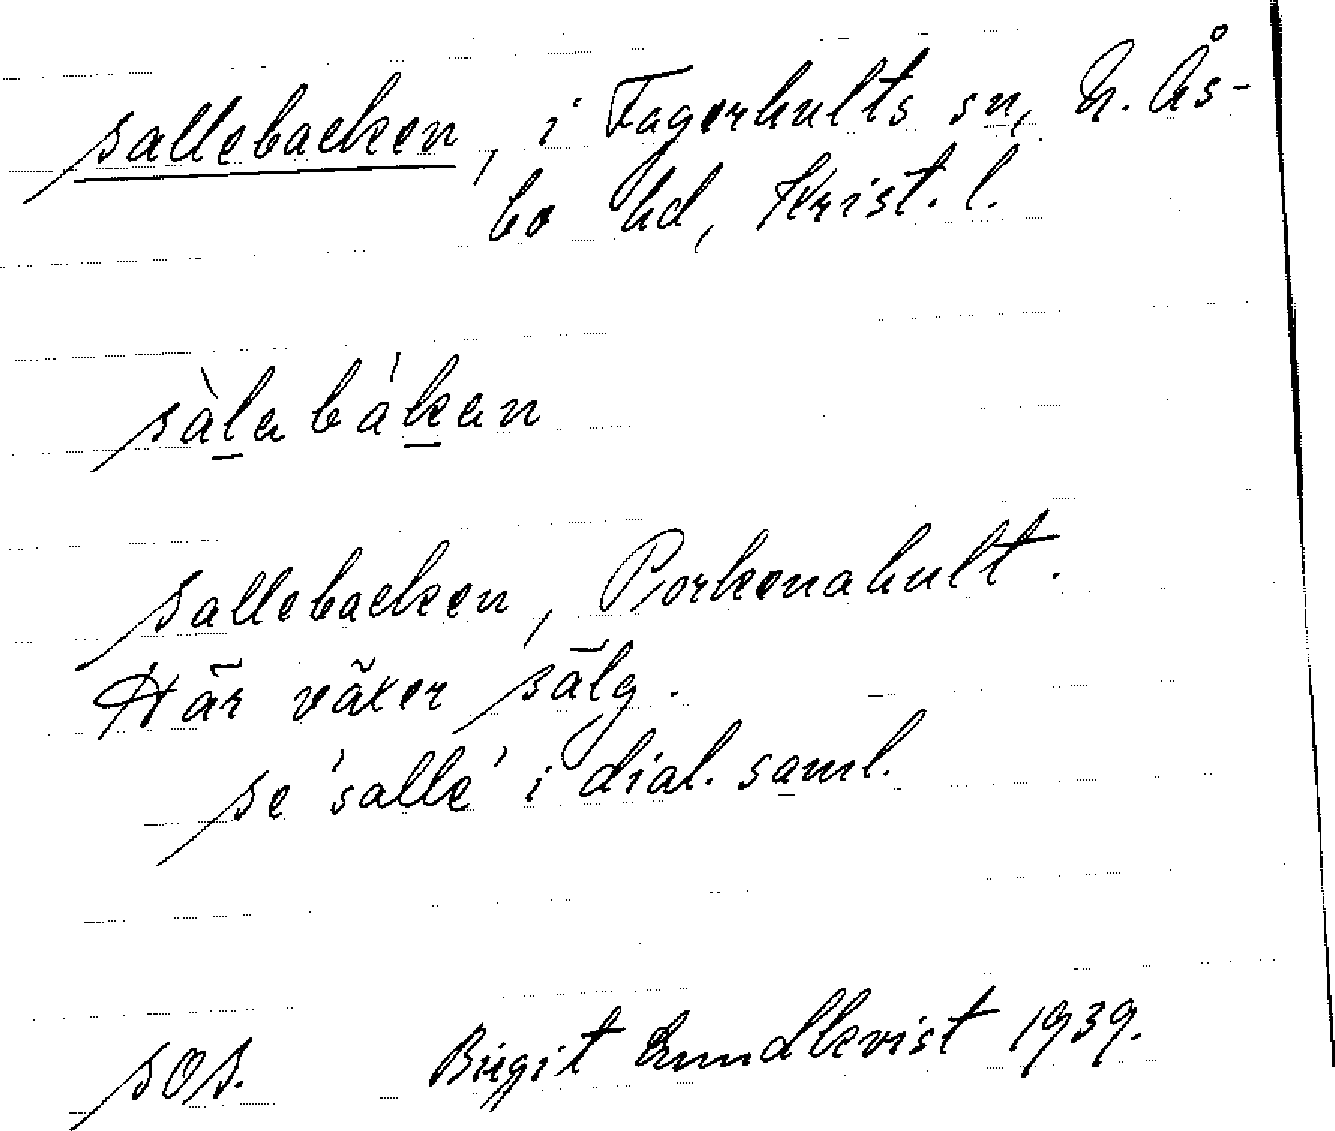 sallebacken, i Fagerhults sn, N. Ås-
bo hd, Krist. l.
sàlabákan
sallebacken, Porkenahult.
Här växer sälg.
se 'salle' i dial. saml.
SOS. Birgit Lundkvist 1939.